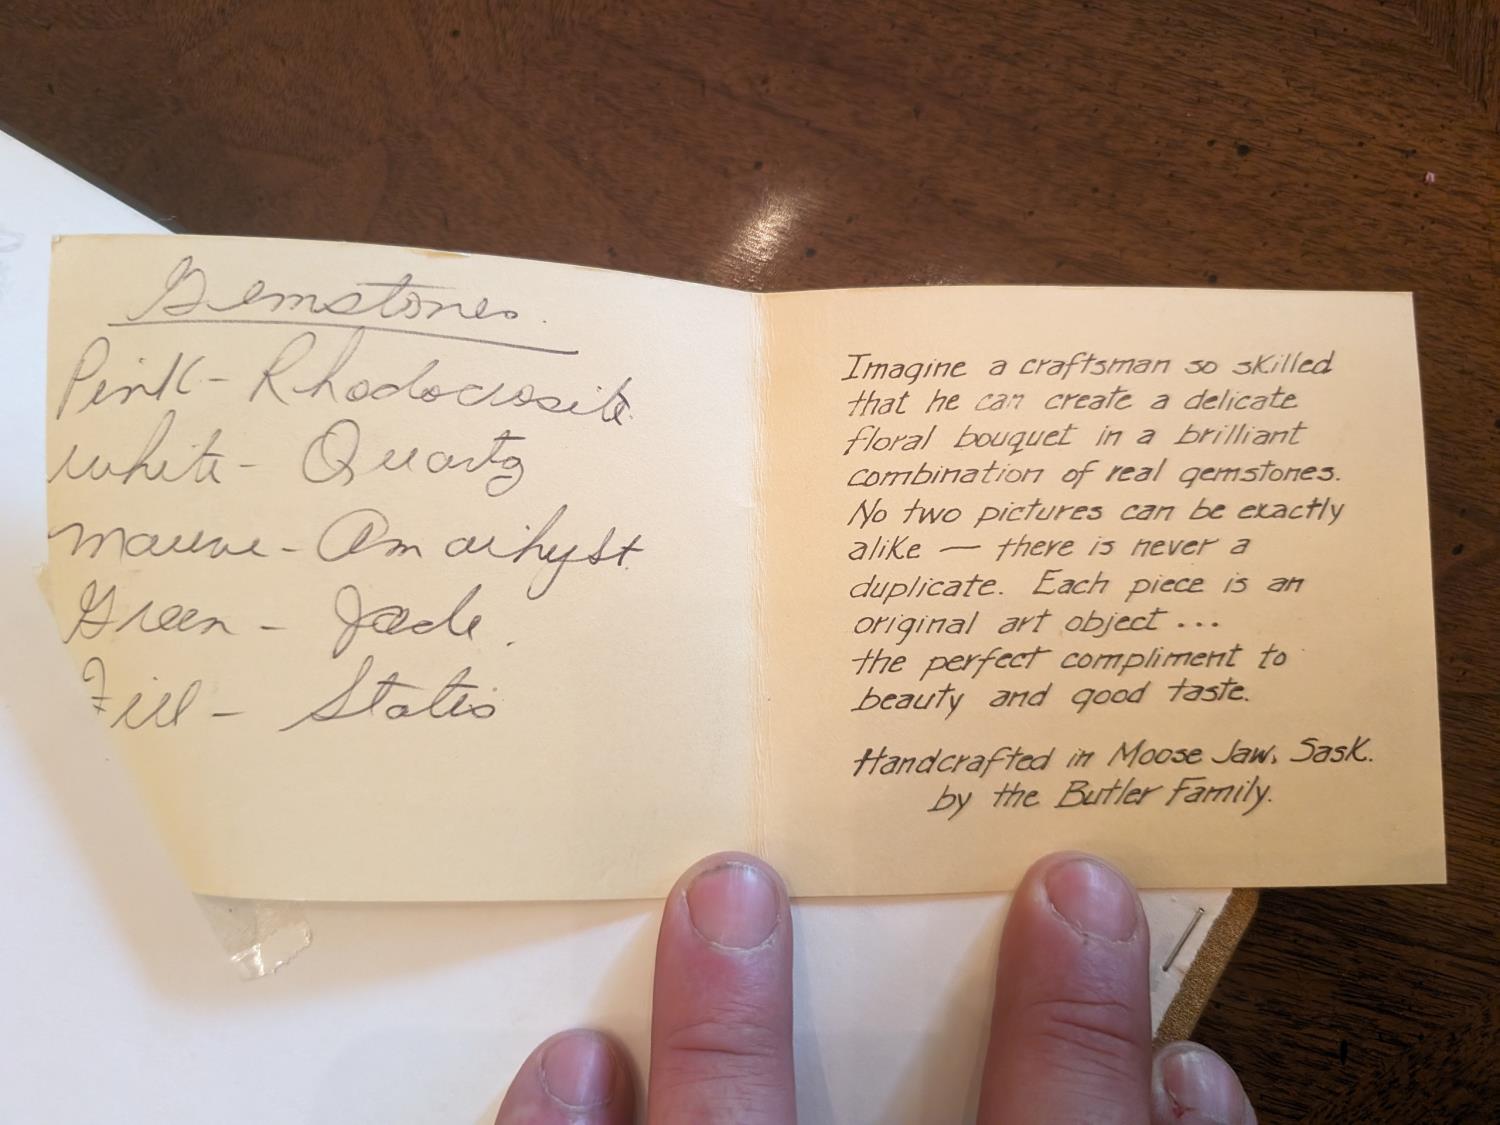 Gemstones.
Pink - Rhodocrosite
white - Quartz
mauve - Amaihyst.
Green - Jade.
Fill - Slatis
Imagine a craftsman so skilled
that he can create a delicate
floral bouquet in a brilliant
combination of real gemstones.
No two pictures can be exactly
alike — there is never a
duplicate. Each piece is an
original art object ...
the perfect compliment to
beauty and good taste.
Handcrafted in Moose Jaw, Sask.
by the Butler Family.